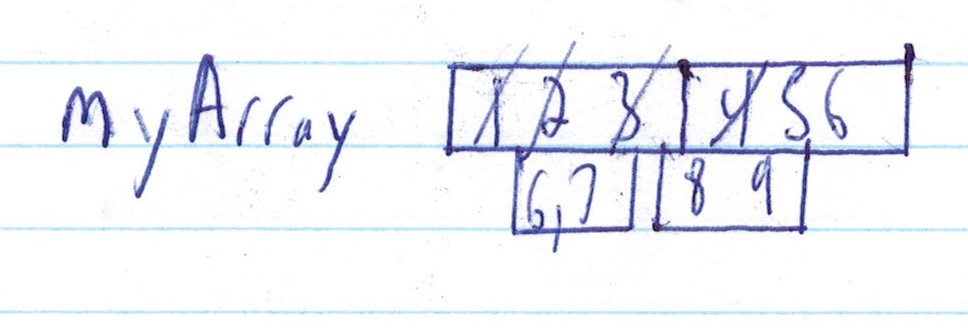 MyArray 1 2 3 4 5 6
6,7 8 9